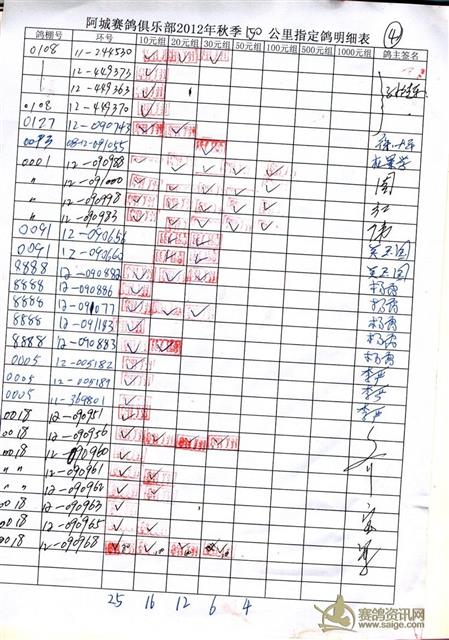 阿城赛鸽俱乐部2012年秋季150公里指定鸽明细表 ④
鸽棚号 环号 10元组 20元组 30元组 50元组 100元组 500元组 1000元组 鸽主签名
0108 11-244530
12-449373
12-449363
0108 12-449370
0127 12-090743
0093 08-12-091055
0001 12-090988
〃 12-091000
〃 12-090998
〃 12-090983
0091 12-090656
0091 12-090660
8888 12-090882
8888 12-090886 杨秀
8888 12-091077 杨秀
8888 12-091193 杨秀
8888 12-090883 杨秀
0005 12-005182
0005 12-005189
0005 11-369801
0018 12-090951
0018 12-090956
0018 12-090960
〃 〃 12-090961
〃 〃 12-090962
0018 12-090963
0018 12-090965
0018 12-090968
25 16 12 6 4
赛鸽资讯网
www.saige.com